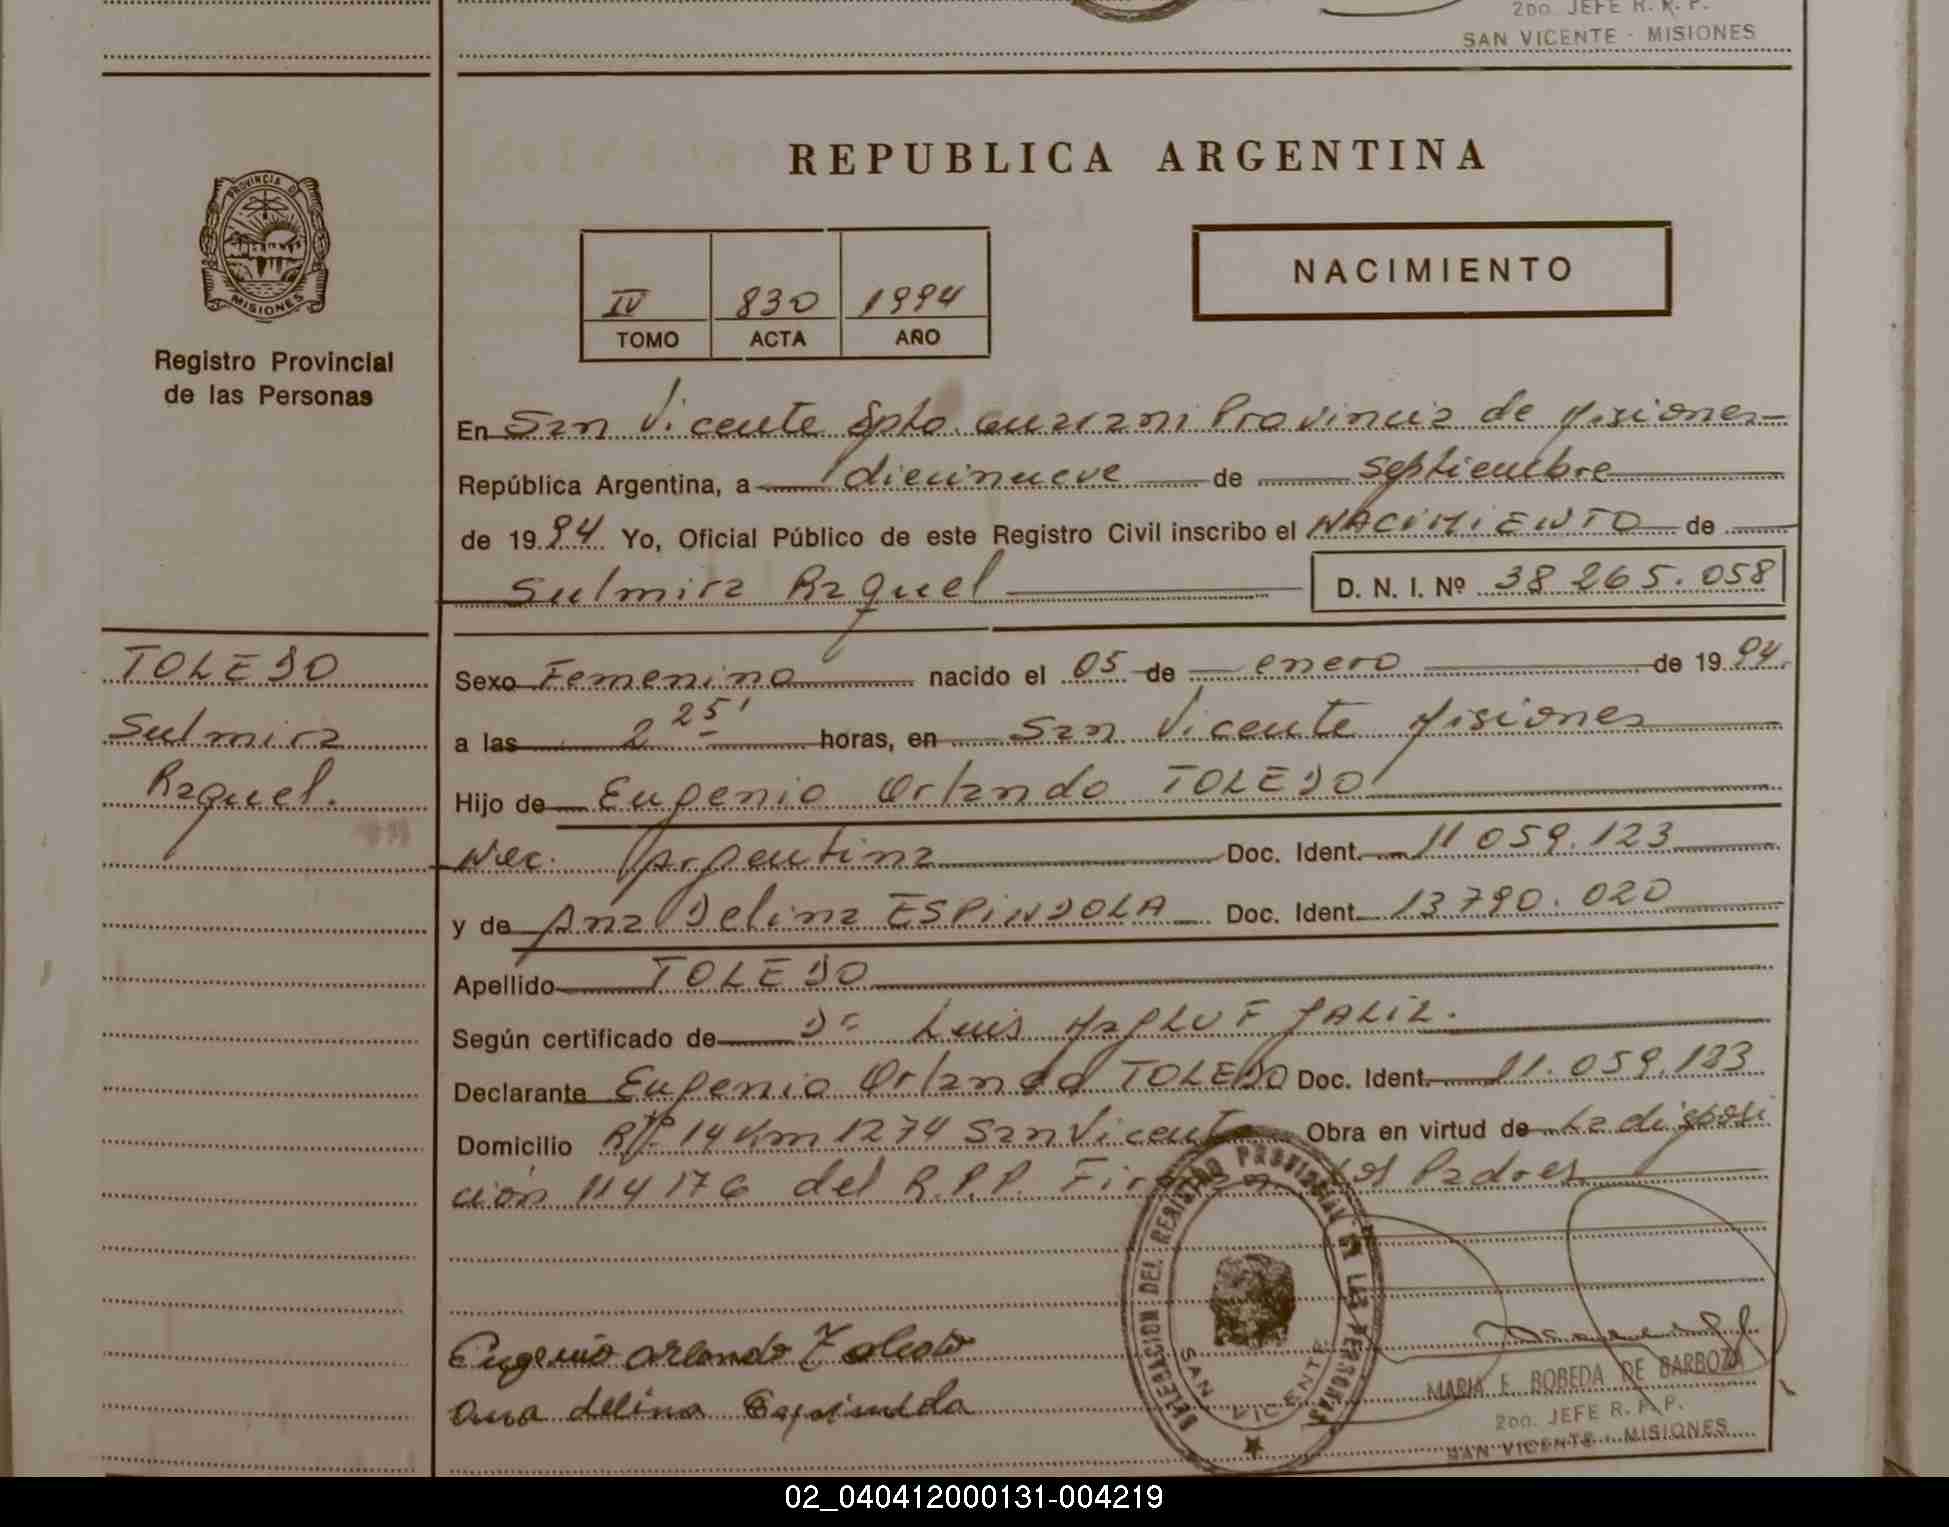 2DO. JEFE R. R. P.
SAN VICENTE - MISIONES
PROVINCIA DE
MISIONES
Registro Provincial
de las Personas
REPUBLICA ARGENTINA
IV 830 1994
TOMO ACTA AÑO
NACIMIENTO
En San Vicente Dpto. Guarani Provincia de Misiones
República Argentina, a diecinueve de septiembre
de 1994 Yo, Oficial Público de este Registro Civil inscribo el NACIMIENTO de
Sulmira Raquel D. N. I. Nº 38 265.058
TOLEDO
Sulmira
Raquel.
Sexo Femenino nacido el 05 de enero de 1994.
a las 2 25' horas, en San Vicente Misiones
Hijo de Eugenio Orlando TOLEDO
Nac. Argentina Doc. Ident. 11 059.123
y de Ana Delina ESPINDOLA Doc. Ident. 13 790.020
Apellido TOLEDO
Según certificado de Dr Luis JALIL.
Declarante Eugenio Orlando TOLEDO Doc. Ident. 11.059.123
Domicilio 14 Km 1274 San Vicente Obra en virtud de La disposi
ción 114176 del R.P.P. Firman Los Padres
DELEGACION DEL REGISTRO PROVINCIAL DE LAS PERSONAS
SAN VICENTE
Eugenio Orlando Toledo
Ana delina Espindola
MARIA E. BOBEDA DE BARBOZA
2DO. JEFE R. P. P.
SAN VICENTE - MISIONES
02_040412000131-004219